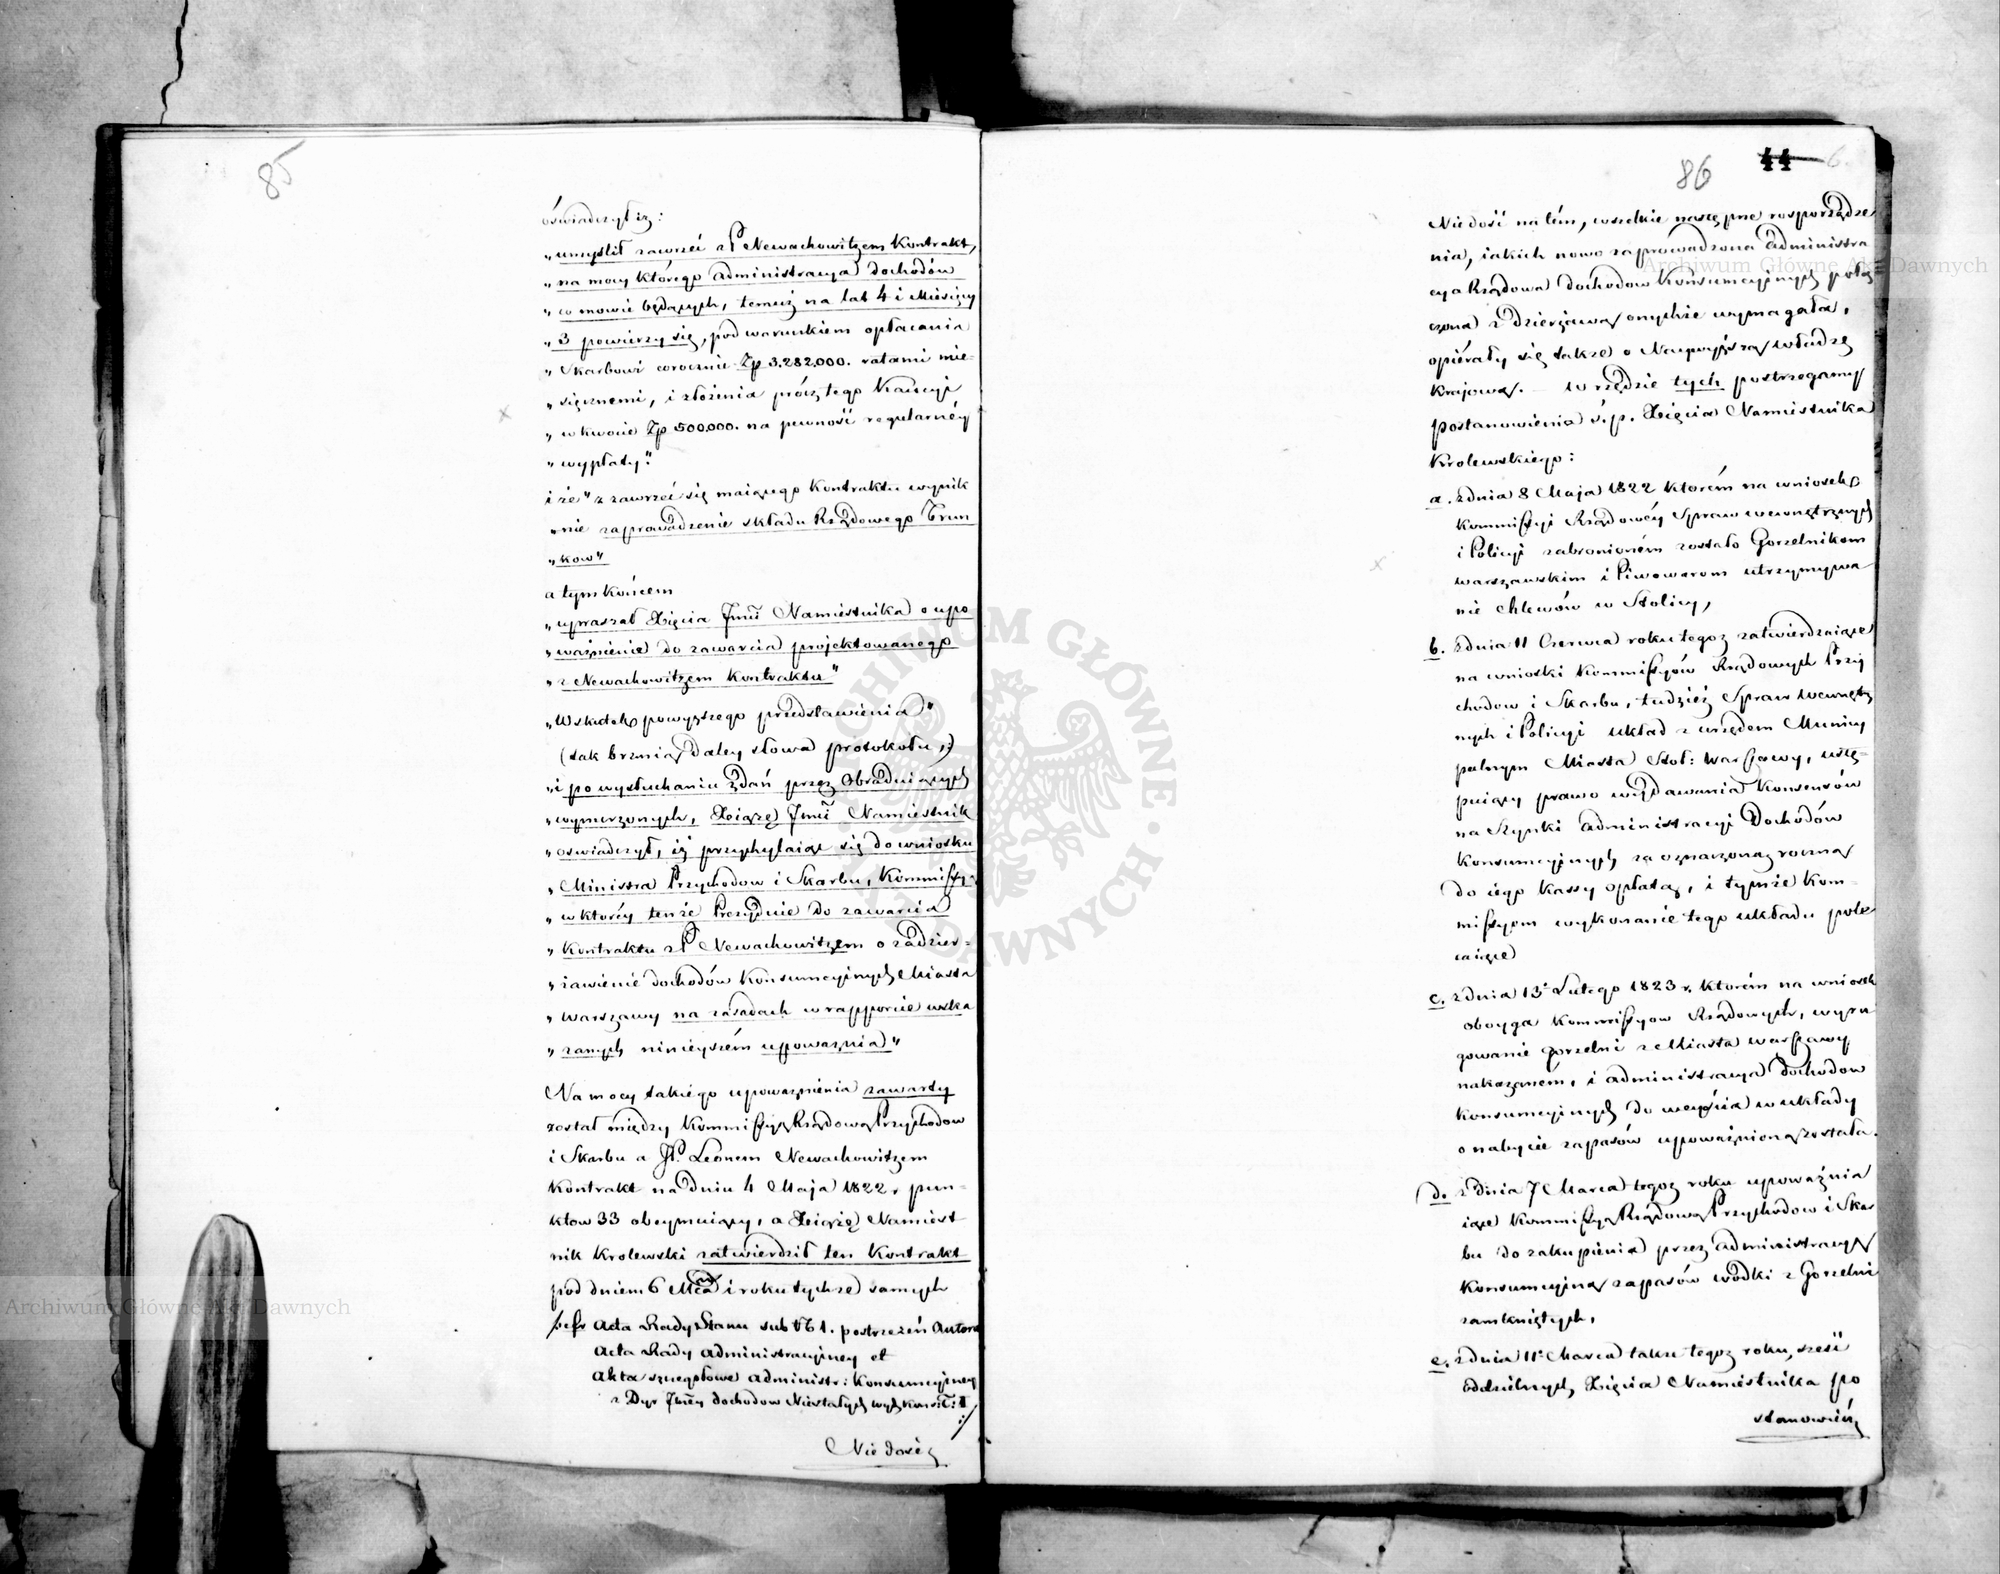 85
oświadczył iż:
„umyślił zawrzeć z P Newachowitzem Kontrakt,
„na mocy którego administracya dochodów
„w mowie będących, temuż na lat 4 i Miesięcy
„3 powierzy się, pod warunkiem opłacania
„Skarbowi corocznie Zp 3.282.000. ratami mie-
„sięcznemi, i złożenia prócz tego Kaucyi
„w kwocie Zp 500.000. na pewność regularnéy
„wypłaty."
i że „z zawrzeć się maiącego Kontraktu wynik
„nie zaprowadzenie składu Rządowego Trun
„kow"
a tym końcem
„upraszał Xięcia Jmći Namiestnika o upo
„ważnienie do zawarcia projektowanego
„z Newachowitzem Kontraktu"
„Wskutek powyższego przedstawienia"
(tak brzmią daley słowa protokołu,)
„i po wysłuchaniu zdań przez Obradujących
„wymierzonych, Xiążę Jmć Namiestnik
„oświadczył, iż przychylaiąc się do wniosku
„Ministra Przychodow i Skarbu, Kommissyą
„w którey tenże Prezyduie do zawarcia
„Kontraktu z P Newachowitzem o zadzier-
„żawienie dochodów Konsumcyinych Miasta
„Warszawy na zasadach w rapporcie wska
„zanych ninieyszém upoważnia"
Na mocy takiego upoważnienia zawarty
został między Kommissyą Rządową Przychodow
i Skarbu a JP. Leonem Newachowitzem
Kontrakt na dniu 4 Maja 1822 r pun-
ktow 33 obeymuiący, a Xiążę Namiest
nik Krolewski zatwierdził ten Kontrakt
pod dniem 6 Mca i roku tychże samych
Acta Rady Stanu sub № 1. postrzeżeń Autora
Acta Rady Administracyjney et
Akta szczegółowe Administr: Konsumcyiney
z Dyr Jlney dochodow Niestałych wyd Kons: T: II
Nie dość
86 44 6
Nie dość na tém, wszelkie następne rosporządze
nia, iakich nowo zaprowadzona administra
cya Rządowa dochodow Konsumcyinych połą
czona z dzierżawą onychże wymagała,
opiérały się także o Naywyższą władzę
Krajową. – W rzędzie tych postrzegamy
postanowienia ś.p. Xięcia Namiestnika
Krolewskiego:
a. z dnia 8 Maja 1822 ktorém na wniosek
Kommissyi Rządowéy Spraw wewnętrznych
i Policyi zabronioném zostało Gorzelnikom
warszawskim i Piwowarom utrzymywa
nie chlewów w Stolicy,
b. z dnia 11 Czerwca roku tegoż zatwierdzaiące
na wnioski Kommissyów Rządowych Przy
chodow i Skarbu, tudzież Spraw Wewnętrz
nych i Policyi układ z urzędem Municy
palnym Miasta Stoł: Warszawy, ustę-
puiący prawo wydawania Konsensów
na Szynki administracyi Dochodów
Konsumcyjnych za oznaczoną roczną
do iego Kassy opłatą, i tymże Kom-
missyom wykonanie tego układu pole
caiące
c. z dnia 13 Lutego 1823 r. ktorém na wniosek
oboyga Kommissyow Rządowych, wyru
gowanie gorzelni z Miasta Warszawy
nakazaném, i administracya dochodow
Konsumcyjnych do weyścia w układy
o nabycie zapasów upoważnioną została.
d. z dnia 7 Marca tegoż roku upoważnia
iące Kommissyą Rządową Przychodow i Skar
bu do zakupienia przez administracyą
Konsumcyjną zapasów wódki z Gorzelni
zamkniętych,
e. z dnia 11 Marca także tegoż roku, sześć
oddzielnych, Xięcia Namiestnika po
stanowień
Archiwum Główne Akt Dawnych
Archiwum Główne Akt Dawnych
ARCHIWUM GŁÓWNE AKT DAWNYCH